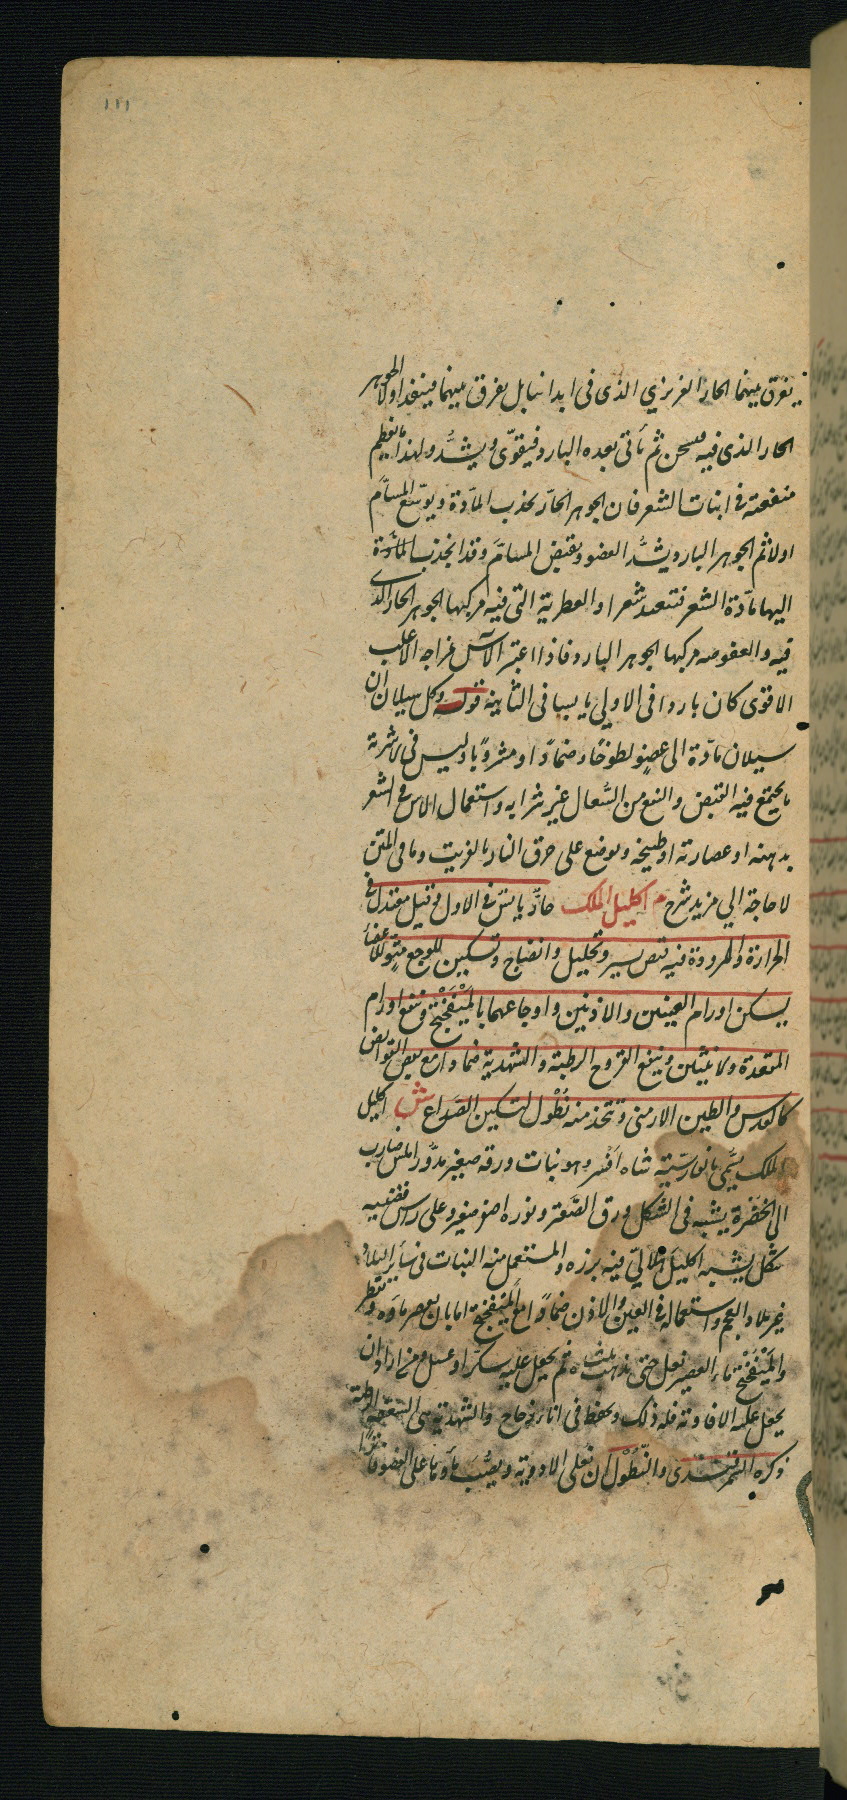 ١١١
يفرق بينهما الحار الغريزي الذى فى ابداننا بل يفرق بينهما فينفذ اولا الجوهر
الحار الذى فيه فيسخن ثم يأتى بعده البارد فيقوّى ويشدّ ولهذا ما يعظم
منفعته فى انبات الشعر فان الجوهر الحارّ يجذب المادّة ويوسّع المسامّ
اولا ثم الجوهر البارد يشدّ العضو ويقبض المسامّ وقد انجذب المادّة
اليها مادّة الشعر فتنعقد شعرا والعطرية التى فيه مركبها الجوهر الحار الذى
فيه والعفوصه مركبها الجوهر البارد فاذا اعتبر الآس مزاجه الاغلب
الاقوى كان باردا فى الاولى يابسا فى الثانية قوله وكل سيلان اى
سيلان مادّة الى عضو لطوخًا وضمادًا ومشروبًا وليس فى الاشربة
ما يجتمع فيه القبض والنفع من السُّعال غير شرابه واستعمال الآس فى الشعر
بدهنه او عصارته او طبيخه ويوضع على حرق النار بالزيت وما فى المتن
لا حاجة الى مزيد شرح م اكليل الملك حارّ يابس فى الاول وقيل معتدل فى
الحرارة والبرودة فيه قبض يسير وتحليل وانضاج وتسكين للوجع مقوٍّ للاعضأ
يسكن اورام العينين والاذنين واوجاعهما بالمَيْفَخْتَج وينفع اورام
المقعدة والانثيين وينفع القروح الرطبة والشهدية ضمادا مع بعض القوابض
كالعدس والطين الارمنى وتتخذ منه نُطُول لتسكين الصّداع ش اكليل
الملك يسمّى بالفارسيّة شاه افسر وهو نبات ورقه صغير مدوّر املس ضارب
الى الخضرة يشبه فى الشكل ورق الصَّعتر ونوره اصفر صغير وعلى راس قضيبه
شكل يشبه اكليل فيه بزره والمستعمل منه النبات فى سأير البلاد
غير بلاد العجم واستعماله فى العين والاذن ضمادًا مع المَيْفَخْتَج اما بان يعصر ماؤه
والمَيْفَخْتَج ماء العصير يغلى حتى يذهب ثلثاه ثم يجعل عليه سكّر او عسل ومن اراد ان
يجعل عليه الافاويه فله ذلك ويحفظ فى انآء زجاج والشهدية هى السّعفة الرطبة
ذكره السّمرقندى والنُّطُوْل ان تغلى الادوية ويصبّ ماؤها على العضو فاترًا